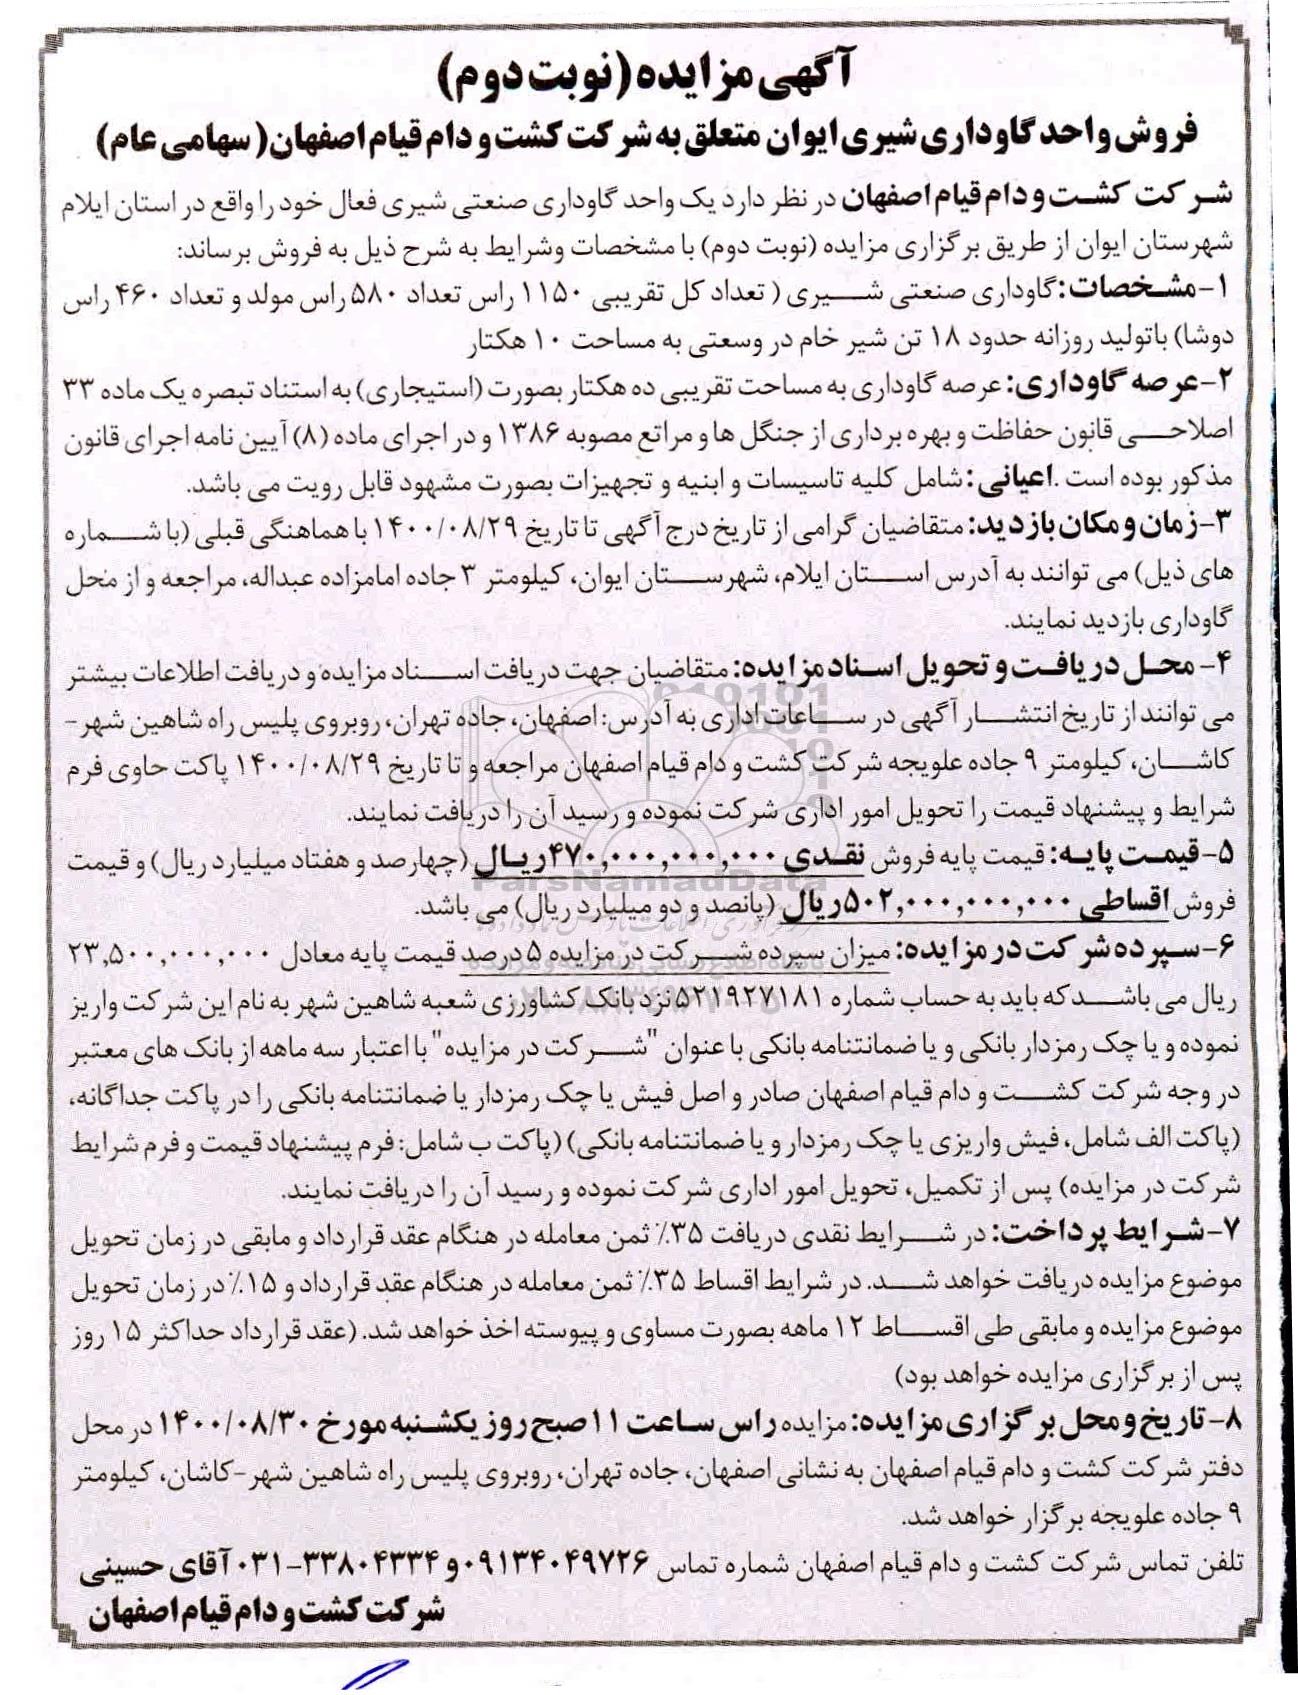 آگهی مزایده (نوبت دوم)
فروش واحد گاوداری شیری ایوان متعلق به شرکت کشت و دام قیام اصفهان (سهامی عام)
شرکت کشت و دام قیام اصفهان در نظر دارد یک واحد گاوداری صنعتی شیری فعال خود را واقع در استان ایلام
شهرستان ایوان از طریق برگزاری مزایده (نوبت دوم) با مشخصات وشرایط به شرح ذیل به فروش برساند:
۱-مشخصات: گاوداری صنعتی شیری ( تعداد کل تقریبی ۱۱۵۰ راس تعداد ۵۸۰ راس مولد و تعداد ۴۶۰ راس
دوشا) باتولید روزانه حدود ۱۸ تن شیر خام در وسعتی به مساحت ۱۰ هکتار
۲-عرصه گاوداری: عرصه گاوداری به مساحت تقریبی ده هکتار بصورت (استیجاری) به استناد تبصره یک ماده ۳۳
اصلاحی قانون حفاظت و بهره برداری از جنگل ها و مراتع مصوبه ۱۳۸۶ و در اجرای ماده (۸) آیین نامه اجرای قانون
مذکور بوده است .اعیانی: شامل کلیه تاسیسات و ابنیه و تجهیزات بصورت مشهود قابل رویت می باشد.
۳-زمان و مکان بازدید: متقاضیان گرامی از تاریخ درج آگهی تا تاریخ ۱۴۰۰/۰۸/۲۹ با هماهنگی قبلی (با شماره
های ذیل) می توانند به آدرس استان ایلام، شهرستان ایوان، کیلومتر ۳ جاده امامزاده عبداله، مراجعه و از محل
گاوداری بازدید نمایند.
۴- محل دریافت و تحویل اسناد مزایده: متقاضیان جهت دریافت اسناد مزایده و دریافت اطلاعات بیشتر
می توانند از تاریخ انتشار آگهی در ساعات اداری به آدرس: اصفهان، جاده تهران، روبروی پلیس راه شاهین شهر-
کاشان، کیلومتر ۹ جاده علویجه شرکت کشت و دام قیام اصفهان مراجعه و تا تاریخ ۱۴۰۰/۰۸/۲۹ پاکت حاوی فرم
شرایط و پیشنهاد قیمت را تحویل امور اداری شرکت نموده و رسید آن را دریافت نمایند.
۵-قیمت پایه: قیمت پایه فروش نقدی ۴۷۰,۰۰۰,۰۰۰,۰۰۰ ریال (چهارصد و هفتاد میلیارد ریال) و قیمت
فروش اقساطی ۵۰۲,۰۰۰,۰۰۰,۰۰۰ ریال (پانصد و دو میلیارد ریال) می باشد.
۶-سپرده شرکت در مزایده: میزان سپرده شرکت در مزایده ۵ درصد قیمت پایه معادل ۲۳,۵۰۰,۰۰۰,۰۰۰
ریال می باشد که باید به حساب شماره ۵۲۱۹۲۷۱۸۱ نزد بانک کشاورزی شعبه شاهین شهر به نام این شرکت واریز
نموده و یا چک رمزدار بانکی و یا ضمانتنامه بانکی با عنوان "شرکت در مزایده" با اعتبار سه ماهه از بانک های معتبر
در وجه شرکت کشت و دام قیام اصفهان صادر و اصل فیش یا چک رمزدار یا ضمانتنامه بانکی را در پاکت جداگانه،
(پاکت الف شامل، فیش واریزی یا چک رمزدار و یا ضمانتنامه بانکی) (پاکت ب شامل: فرم پیشنهاد قیمت و فرم شرایط
شرکت در مزایده) پس از تکمیل، تحویل امور اداری شرکت نموده و رسید آن را دریافت نمایند.
۷-شرایط پرداخت: در شرایط نقدی دریافت ۳۵٪ ثمن معامله در هنگام عقد قرارداد و مابقی در زمان تحویل
موضوع مزایده دریافت خواهد شد. در شرایط اقساط ۳۵٪ ثمن معامله در هنگام عقد قرارداد و ۱۵٪ در زمان تحویل
موضوع مزایده و مابقی طی اقساط ۱۲ ماهه بصورت مساوی و پیوسته اخذ خواهد شد. (عقد قرارداد حداکثر ۱۵ روز
پس از برگزاری مزایده خواهد بود)
۸-تاریخ و محل برگزاری مزایده: مزایده راس ساعت ۱۱ صبح روز یکشنبه مورخ ۱۴۰۰/۰۸/۳۰ در محل
دفتر شرکت کشت و دام قیام اصفهان به نشانی اصفهان، جاده تهران، روبروی پلیس راه شاهین شهر-کاشان، کیلومتر
۹ جاده علویجه برگزار خواهد شد.
تلفن تماس شرکت کشت و دام قیام اصفهان شماره تماس ۰۹۱۳۴۰۴۹۷۲۶ و ۳۳۸۰۴۳۳۴-۰۳۱ آقای حسینی
شرکت کشت و دام قیام اصفهان
ParsNamadData